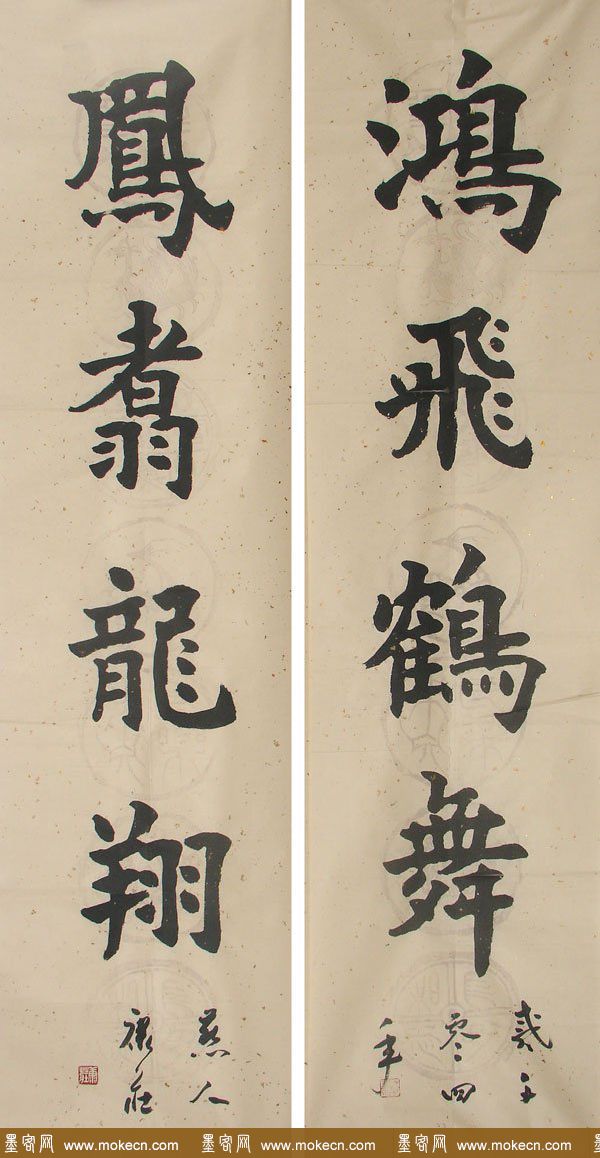 鴻飛鶴舞
贰千
零四
年
鳳翥龍翔
燕人
墨客网 www.mokecn.com 墨客网 www.mokecn.com 墨客网 www.mokecn.com